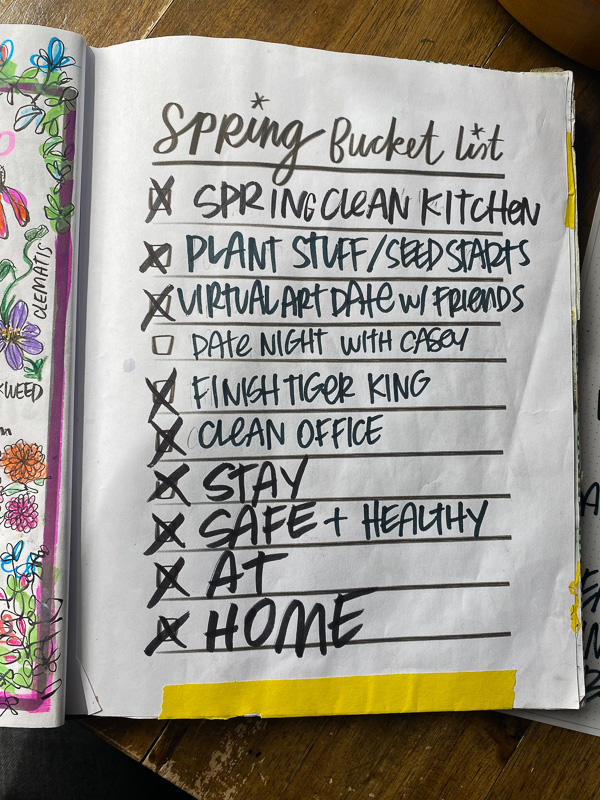 CLEMATIS
KWEED
Spring Bucket List
SPRING CLEAN KITCHEN
PLANT STUFF/SEED STARTS
VIRTUAL ART DATE W/ FRIENDS
DATE NIGHT WITH CASEY
FINISH TIGER KING
CLEAN OFFICE
STAY
SAFE + HEALTHY
AT
HOME